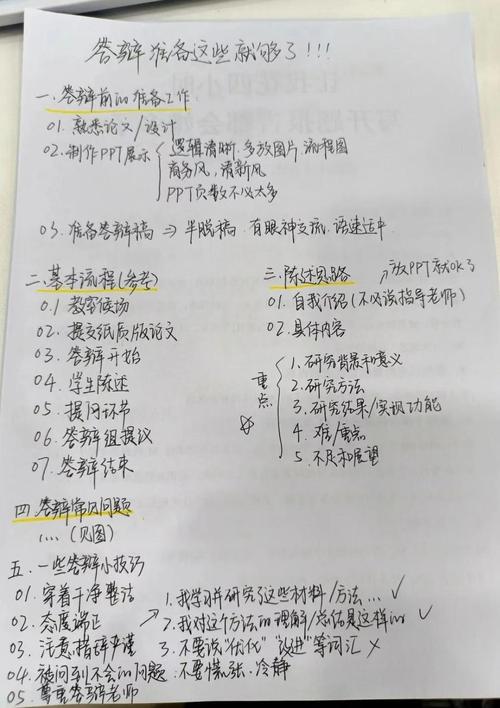 答辩准备这些就够了!!!
一.答辩前的准备工作
01. 熟悉论文/设计
02. 制作PPT展示
逻辑清晰.多放图片.流程图
商务风,清新风
PPT页数不必太多
03. 准备答辩稿 ⇒ 半脱稿.有眼神交流.语速适中
二.基本流程(参考)
0.1 教室候场
02. 提交纸质版论文
03. 答辩开始
04. 学生陈述
05. 提问环节
06. 答辩组提议
07. 答辩结束
三.陈述思路
↗放PPT就OK了
01. 自我介绍(不必说指导老师)
02. 具体内容
重点
☆
1. 研究背景和意义
2. 研究方法
3. 研究结果/实现功能
4. 难/重点
5. 不足和展望
四.答辩常见问题
....(见图)
五.一些答辩小技巧
01. 穿着干净整洁
02. 态度端正
03. 注意措辞严谨
04. 被问到不会的问题.不要慌张.冷静
05. 尊重答辩老师
1. 我学习并研究了这些材料/方法... ✓
2. 我对这个方法的理解/总结是这样的 ✓
3. 不要说"优化""改进"等词汇 ×